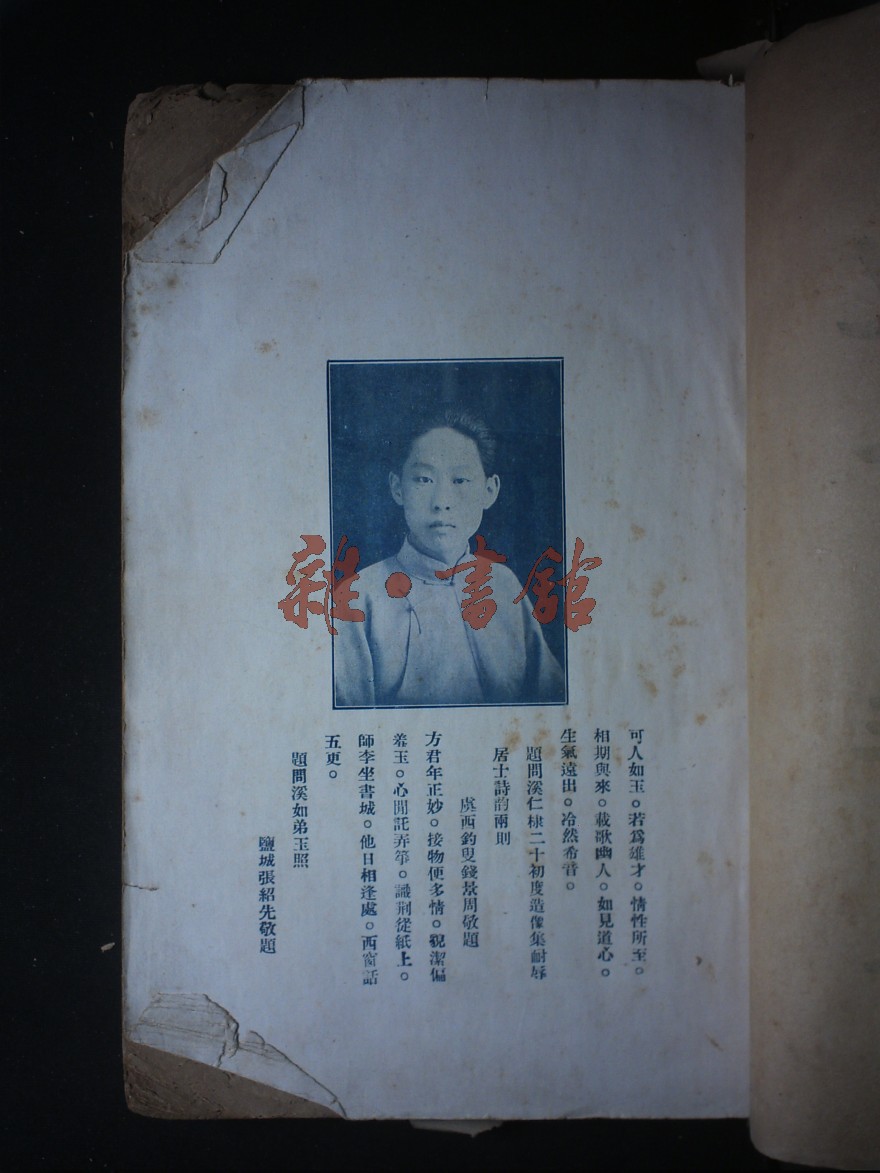 可人如玉。若爲雄才。情性所至。
相期與來。載歌幽人。如見道心。
生氣遠出。冷然希音。
題問溪仁棣二十初度造像集耐辱
居士詩韵兩則
虞西釣叟錢景周敬題
方君年正妙。接物便多情。貌潔偏
羞玉。心閒託弄箏。識荆從紙上。
師李坐書城。他日相逢處。西窗話
五更。
題問溪如弟玉照
鹽城張紹先敬題
雜·書館